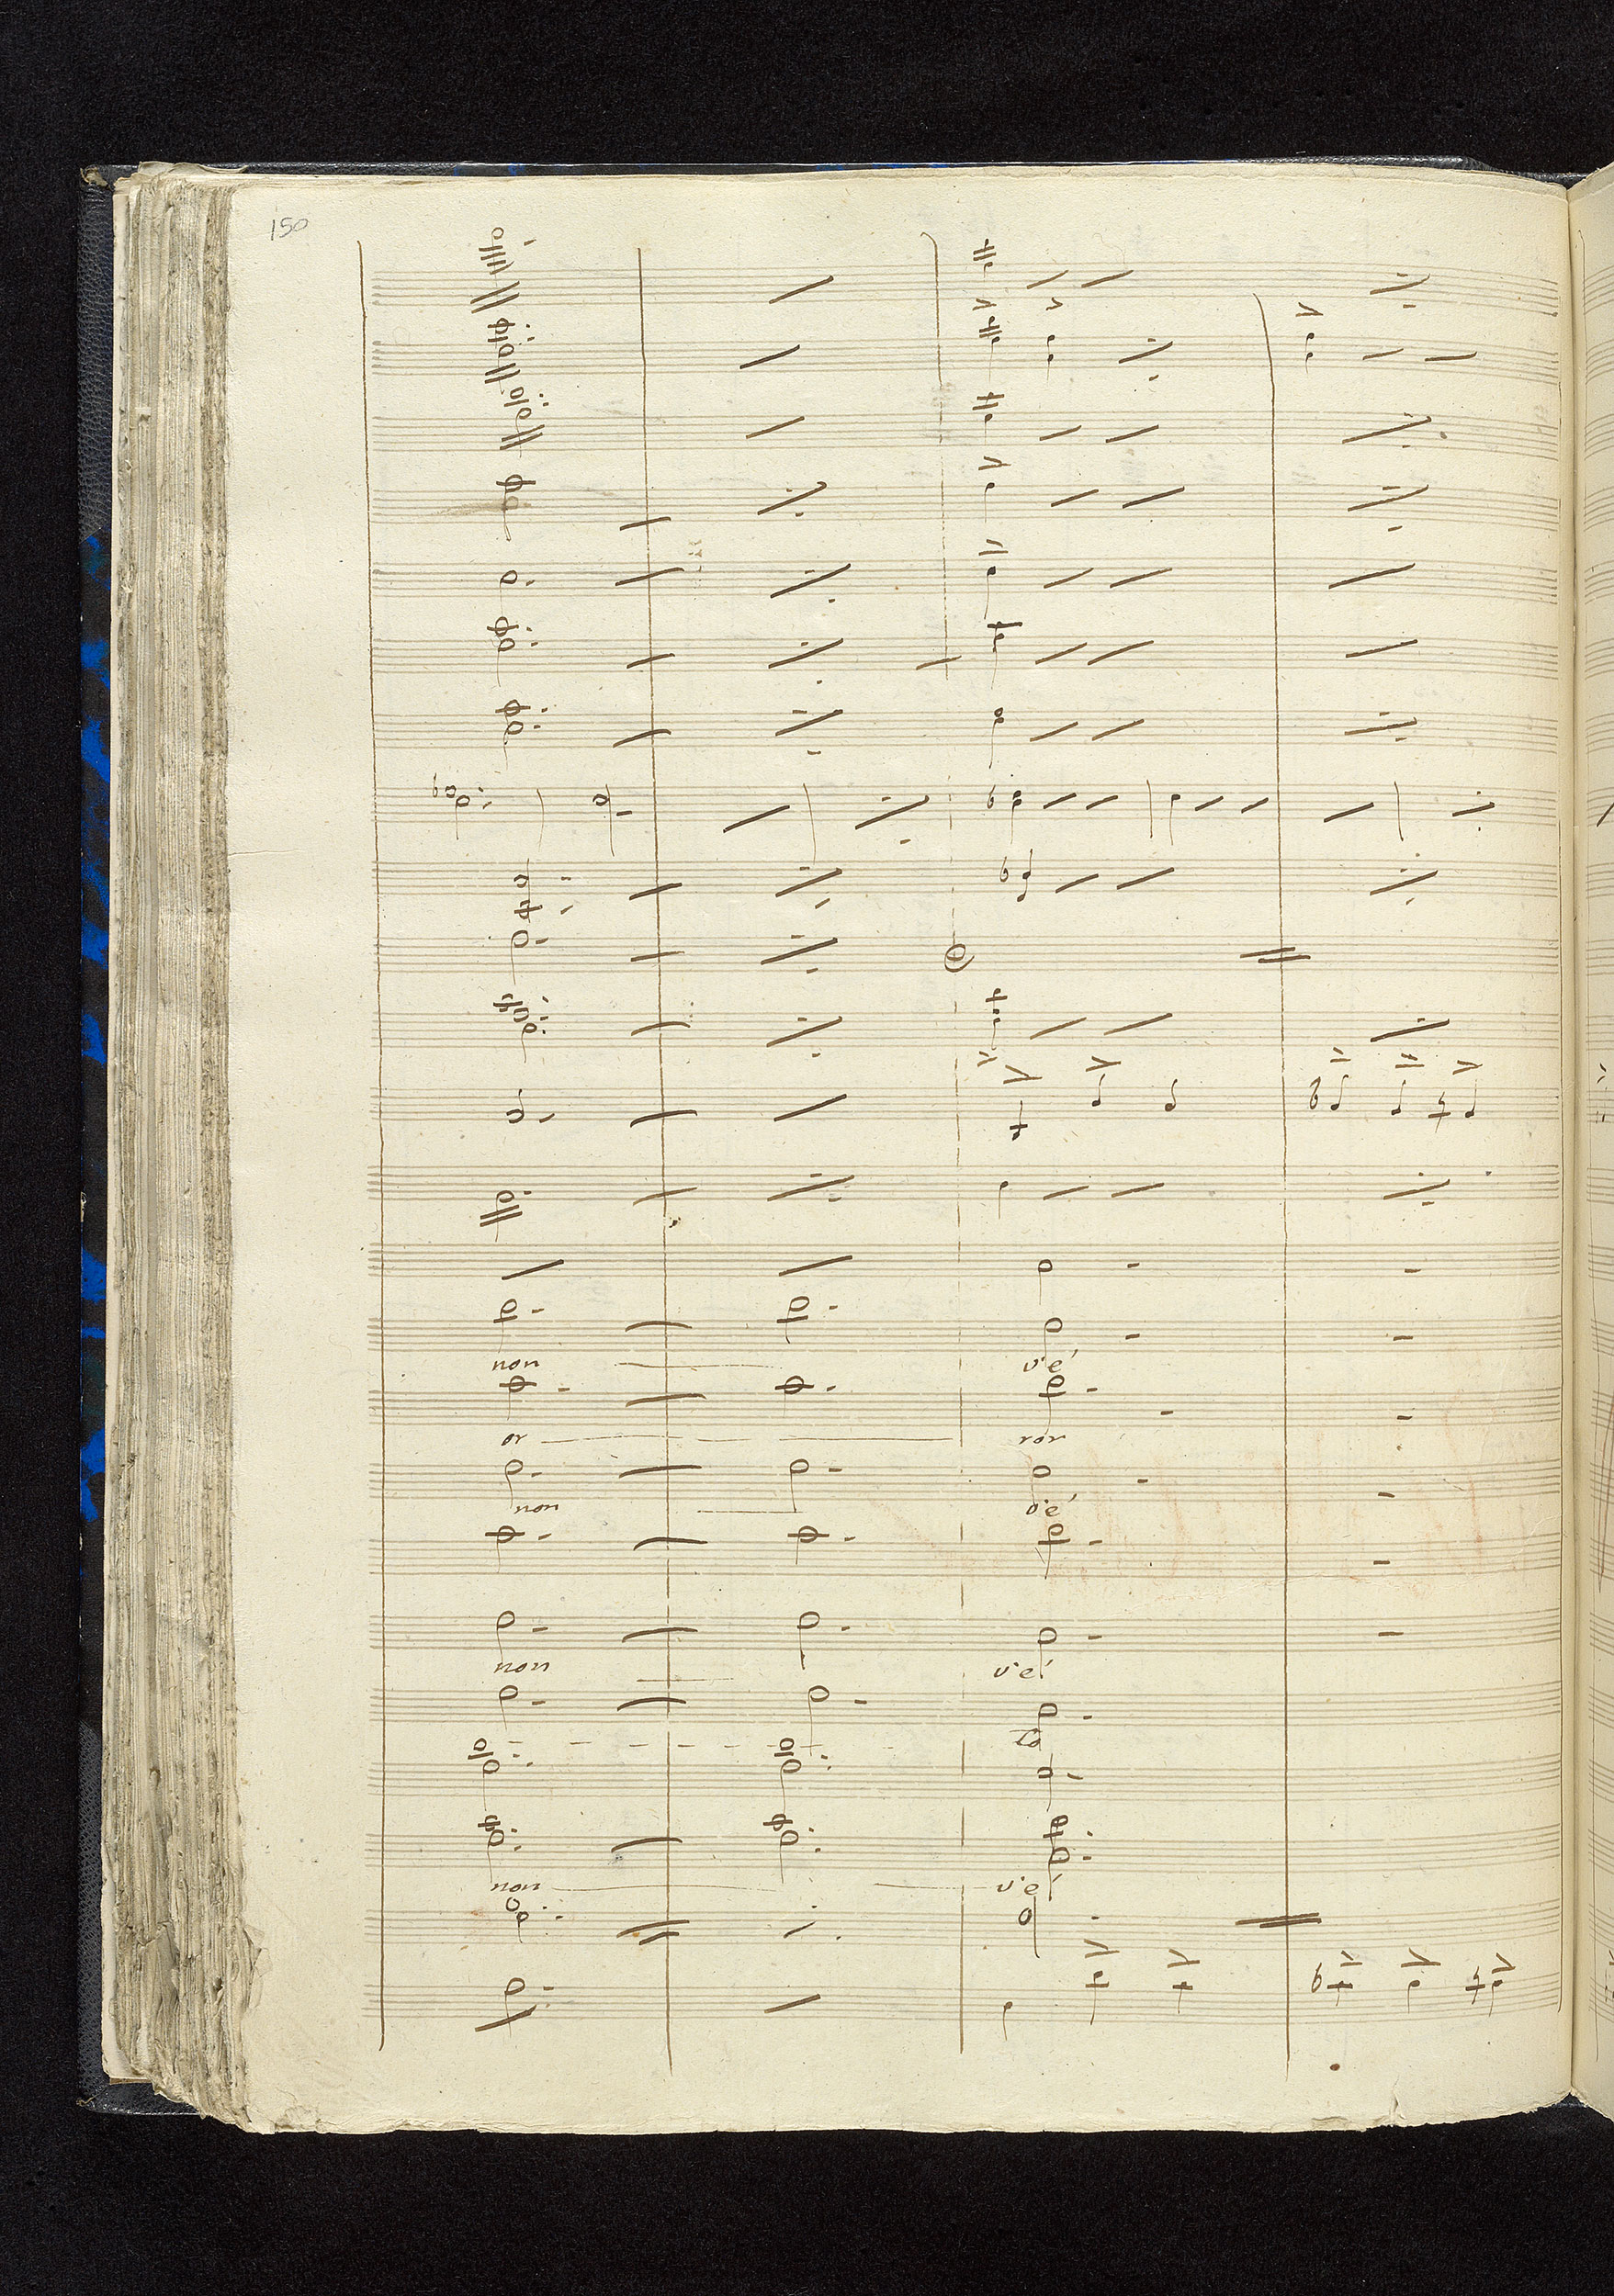 150
non v'é
or ror
non v'é
non v'é
non v'é